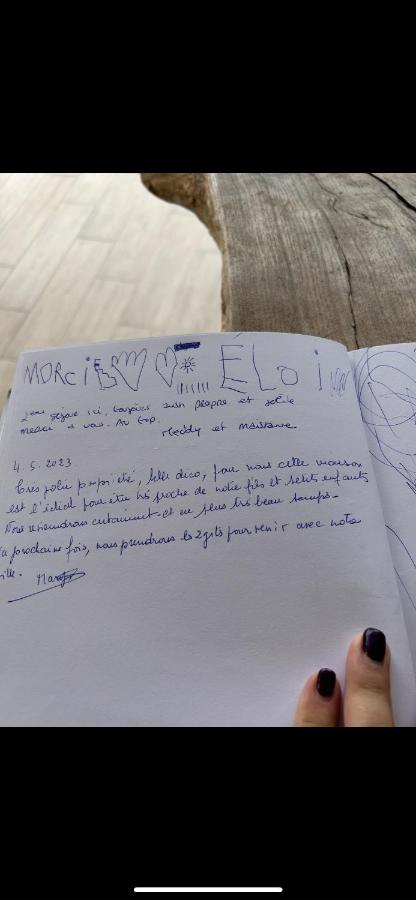 MORCi ÉLoi
2ème séjour ici, toujours aussi propre et
merci à vous. Au top.
Meddy et
4.5.2023
Très jolie propriété, belle déco, pour nous cette maison
est l'idéal pour être très proche de notre fils et petits enfants
Nous reviendrons certainement. et en plus très beau temps.
La prochaine fois, nous prendrons les 2 gîts pour venir avec notre
fille.